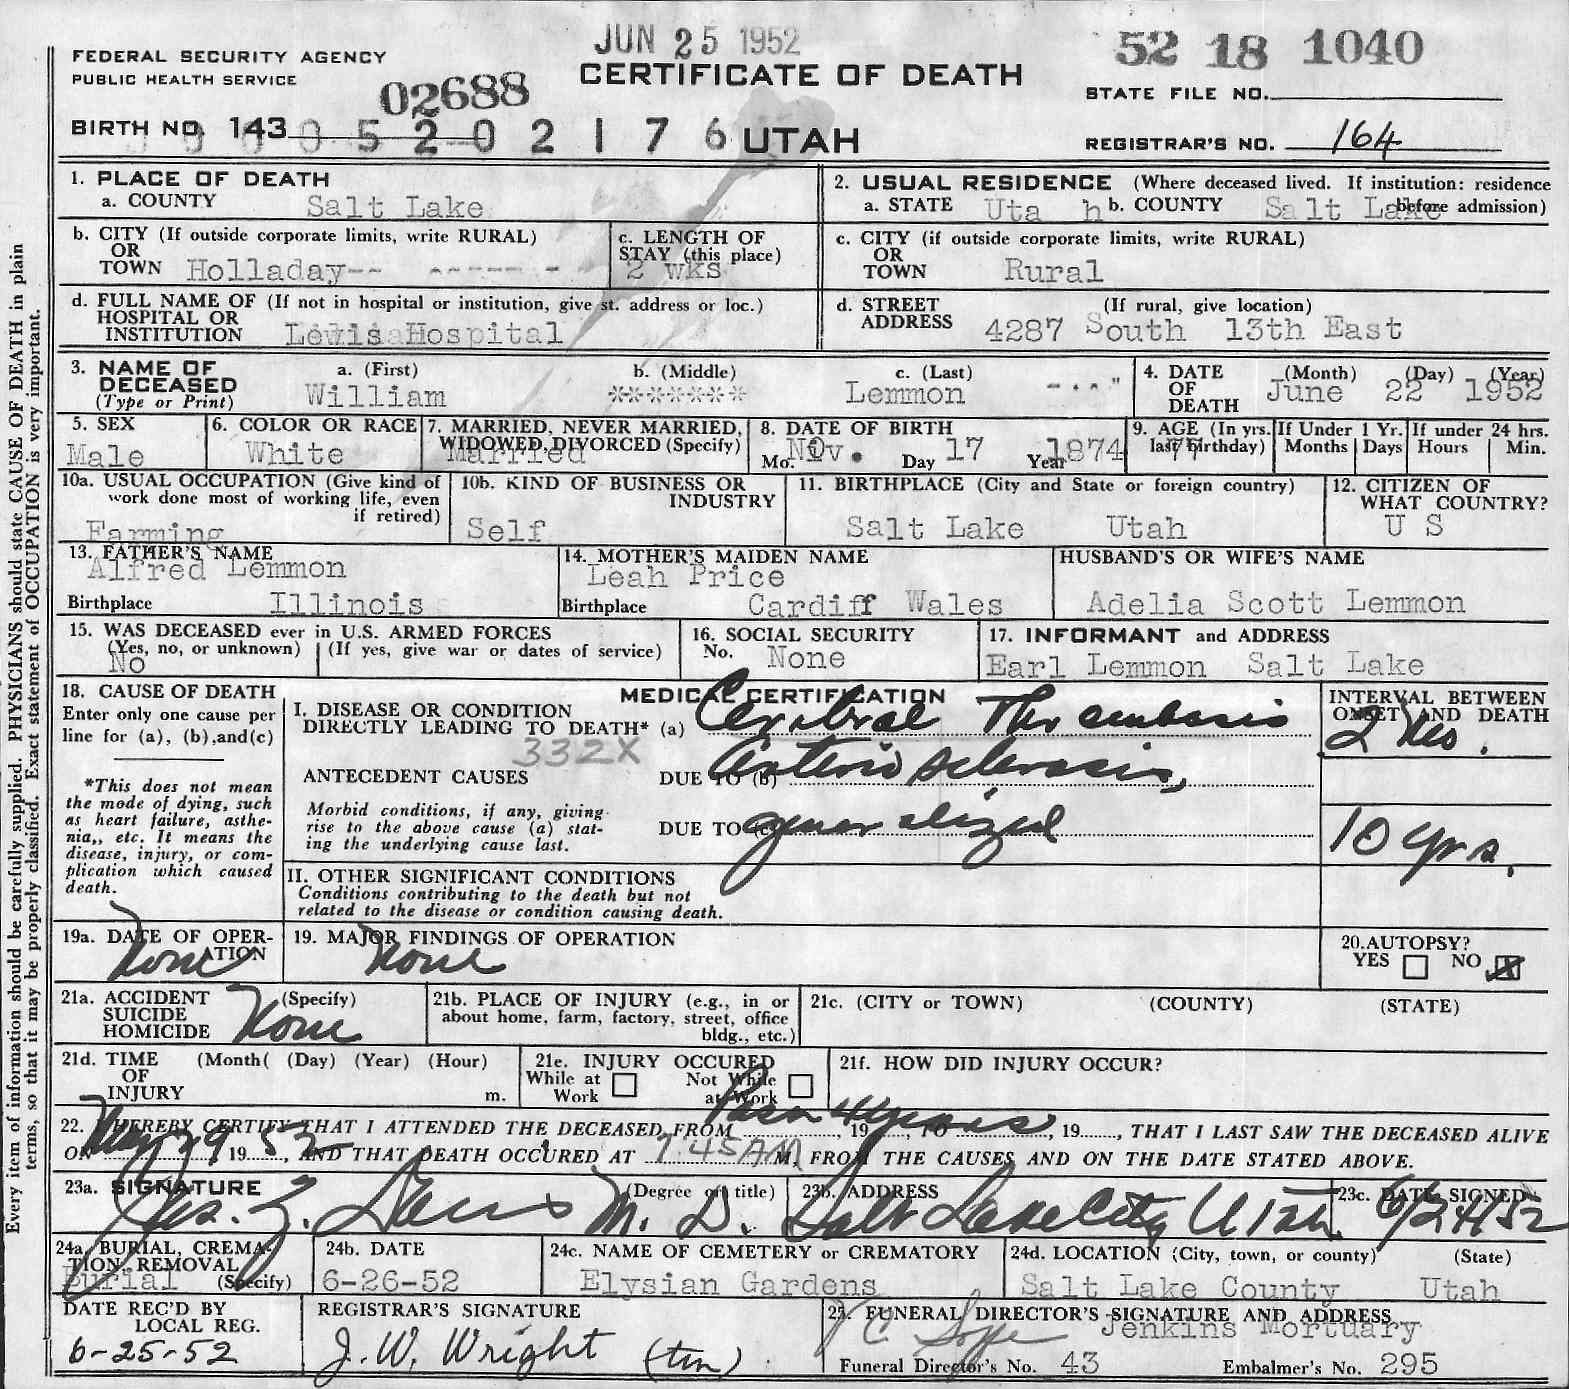 JUN 25 1952
52 18 1040
FEDERAL SECURITY AGENCY
PUBLIC HEALTH SERVICE
02688
CERTIFICATE OF DEATH
STATE FILE NO.
BIRTH NO. 143
0 5 2 0 2 1 7 6
UTAH
REGISTRAR'S NO. 164
Every item of information should be carefully supplied. PHYSICIANS should state CAUSE OF DEATH in plain
terms, so that it may be properly classified. Exact statement of OCCUPATION is very important.
1. PLACE OF DEATH
a. COUNTY Salt Lake
2. USUAL RESIDENCE (Where deceased lived. If institution: residence before admission)
a. STATE Uta h b. COUNTY Salt Lake
b. CITY (If outside corporate limits, write RURAL)
OR
TOWN Holladay-- ------ -
c. LENGTH OF
STAY (this place)
2 wks
c. CITY (if outside corporate limits, write RURAL)
OR
TOWN Rural
d. FULL NAME OF (If not in hospital or institution, give st. address or loc.)
HOSPITAL OR
INSTITUTION Lewis Hospital
d. STREET (If rural, give location)
ADDRESS 4287 South 13th East
3. NAME OF
DECEASED
(Type or Print)
a. (First) William
b. (Middle) *******
c. (Last) Lemmon
4. DATE
OF
DEATH
(Month) (Day) (Year)
June 22 1952
5. SEX
Male
6. COLOR OR RACE
White
7. MARRIED, NEVER MARRIED,
WIDOWED, DIVORCED (Specify)
Married
8. DATE OF BIRTH
Mo. Nov. Day 17 Year 1874
9. AGE (In yrs. last birthday) 77
If Under 1 Yr. Months Days
If under 24 hrs. Hours Min.
10a. USUAL OCCUPATION (Give kind of
work done most of working life, even
if retired)
Farming
10b. KIND OF BUSINESS OR
INDUSTRY
Self
11. BIRTHPLACE (City and State or foreign country)
Salt Lake Utah
12. CITIZEN OF
WHAT COUNTRY?
U S
13. FATHER'S NAME
Alfred Lemmon
Birthplace Illinois
14. MOTHER'S MAIDEN NAME
Leah Price
Birthplace Cardiff Wales
HUSBAND'S OR WIFE'S NAME
Adelia Scott Lemmon
15. WAS DECEASED ever in U.S. ARMED FORCES
(Yes, no, or unknown) (If yes, give war or dates of service)
No
16. SOCIAL SECURITY
No. None
17. INFORMANT and ADDRESS
Earl Lemmon Salt Lake
18. CAUSE OF DEATH
Enter only one cause per
line for (a), (b),and(c)
*This does not mean
the mode of dying, such
as heart failure, asthe-
nia,, etc. It means the
disease, injury, or com-
plication which caused
death.
MEDICAL CERTIFICATION
I. DISEASE OR CONDITION
DIRECTLY LEADING TO DEATH* (a) Cerebral Thrombosis
332X
ANTECEDENT CAUSES
DUE TO (b) Arteriosclerosis,
Morbid conditions, if any, giving
rise to the above cause (a) stat-
ing the underlying cause last.
DUE TO (c) generalized
INTERVAL BETWEEN
ONSET AND DEATH
10 yrs.
II. OTHER SIGNIFICANT CONDITIONS
Conditions contributing to the death but not
related to the disease or condition causing death.
19a. DATE OF OPER-
ATION
None
19. MAJOR FINDINGS OF OPERATION
None
20.AUTOPSY?
YES NO X
21a. ACCIDENT (Specify)
SUICIDE
HOMICIDE
None
21b. PLACE OF INJURY (e.g., in or
about home, farm, factory, street, office
bldg., etc.)
21c. (CITY or TOWN) (COUNTY) (STATE)
21d. TIME (Month( (Day) (Year) (Hour)
OF
INJURY m.
21e. INJURY OCCURED
While at Work
Not While at Work
21f. HOW DID INJURY OCCUR?
22. I HEREBY CERTIFY THAT I ATTENDED THE DECEASED FROM 4 years, 19......, TO ............, 19......, THAT I LAST SAW THE DECEASED ALIVE
ON May 29 19 52, AND THAT DEATH OCCURED AT 7:45 AM M, FROM THE CAUSES AND ON THE DATE STATED ABOVE.
23a. SIGNATURE (Degree or title)
M. D.
23b. ADDRESS
Salt Lake City Utah
23c. DATE SIGNED
6/24/52
24a. BURIAL, CREMA-
TION, REMOVAL
(Specify)
Burial
24b. DATE
6-26-52
24c. NAME OF CEMETERY or CREMATORY
Elysian Gardens
24d. LOCATION (City, town, or county) (State)
Salt Lake County Utah
DATE REC'D BY
LOCAL REG.
6-25-52
REGISTRAR'S SIGNATURE
J. W. Wright
25. FUNERAL DIRECTOR'S SIGNATURE AND ADDRESS
Jenkins Mortuary
Funeral Director's No. 43 Embalmer's No. 295